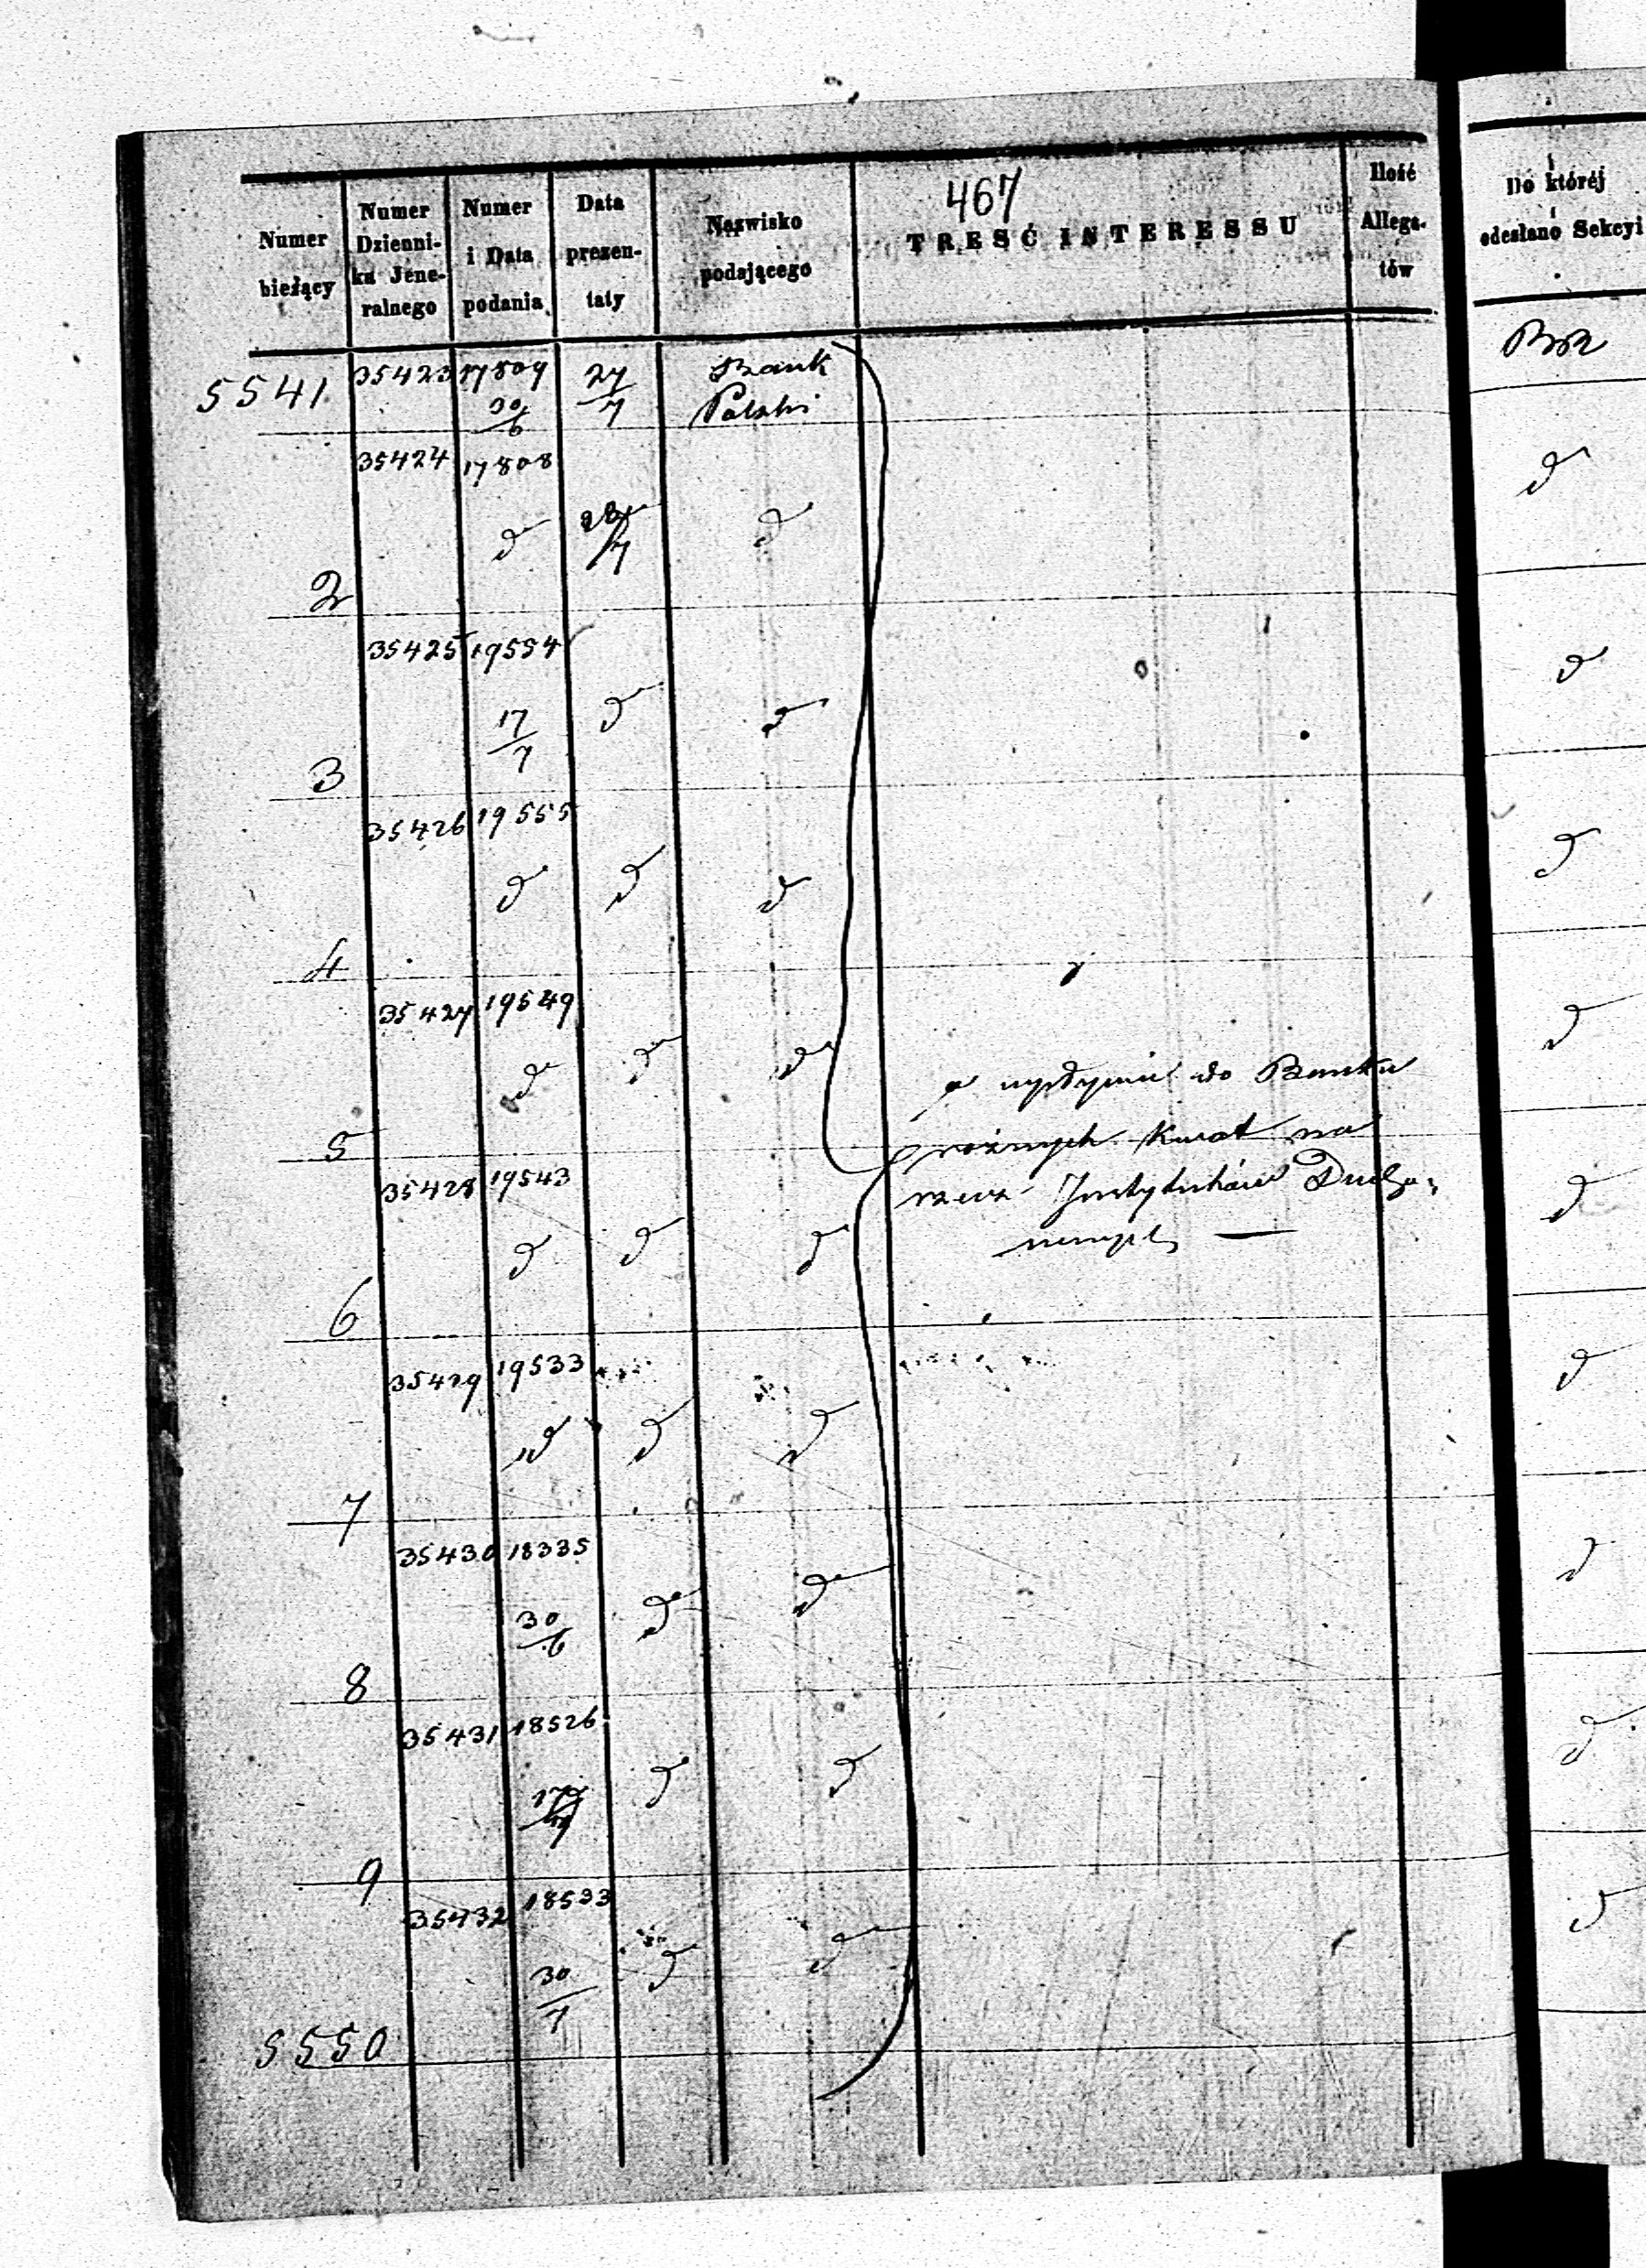 467
Numer bieżący | Numer Dziennika Jeneralnego | Numer i Data podania | Data prezentaty | Nazwisko podającego | TREŚĆ INTERESSU | Ilość Allegatów | Do któréj odesłano Sekcyi
5541 35423 17809 30/6 27/7 Bank Polski
2 35424 17808 d 28/7 d d
3 35425 19554 17/7 d d d
4 35426 19555 d d d d
5 35427 19549 d d d d
o wpłynieniu do Banku
różnych kwot na
rzecz Instytutów Ducho-
wnych —
6 35428 19543 d d d d
7 35429 19533 d d d d
8 35430 18335 30/6 d d d
9 35431 18526 17/7 d d d
5550 35432 18533 30/7 d d d